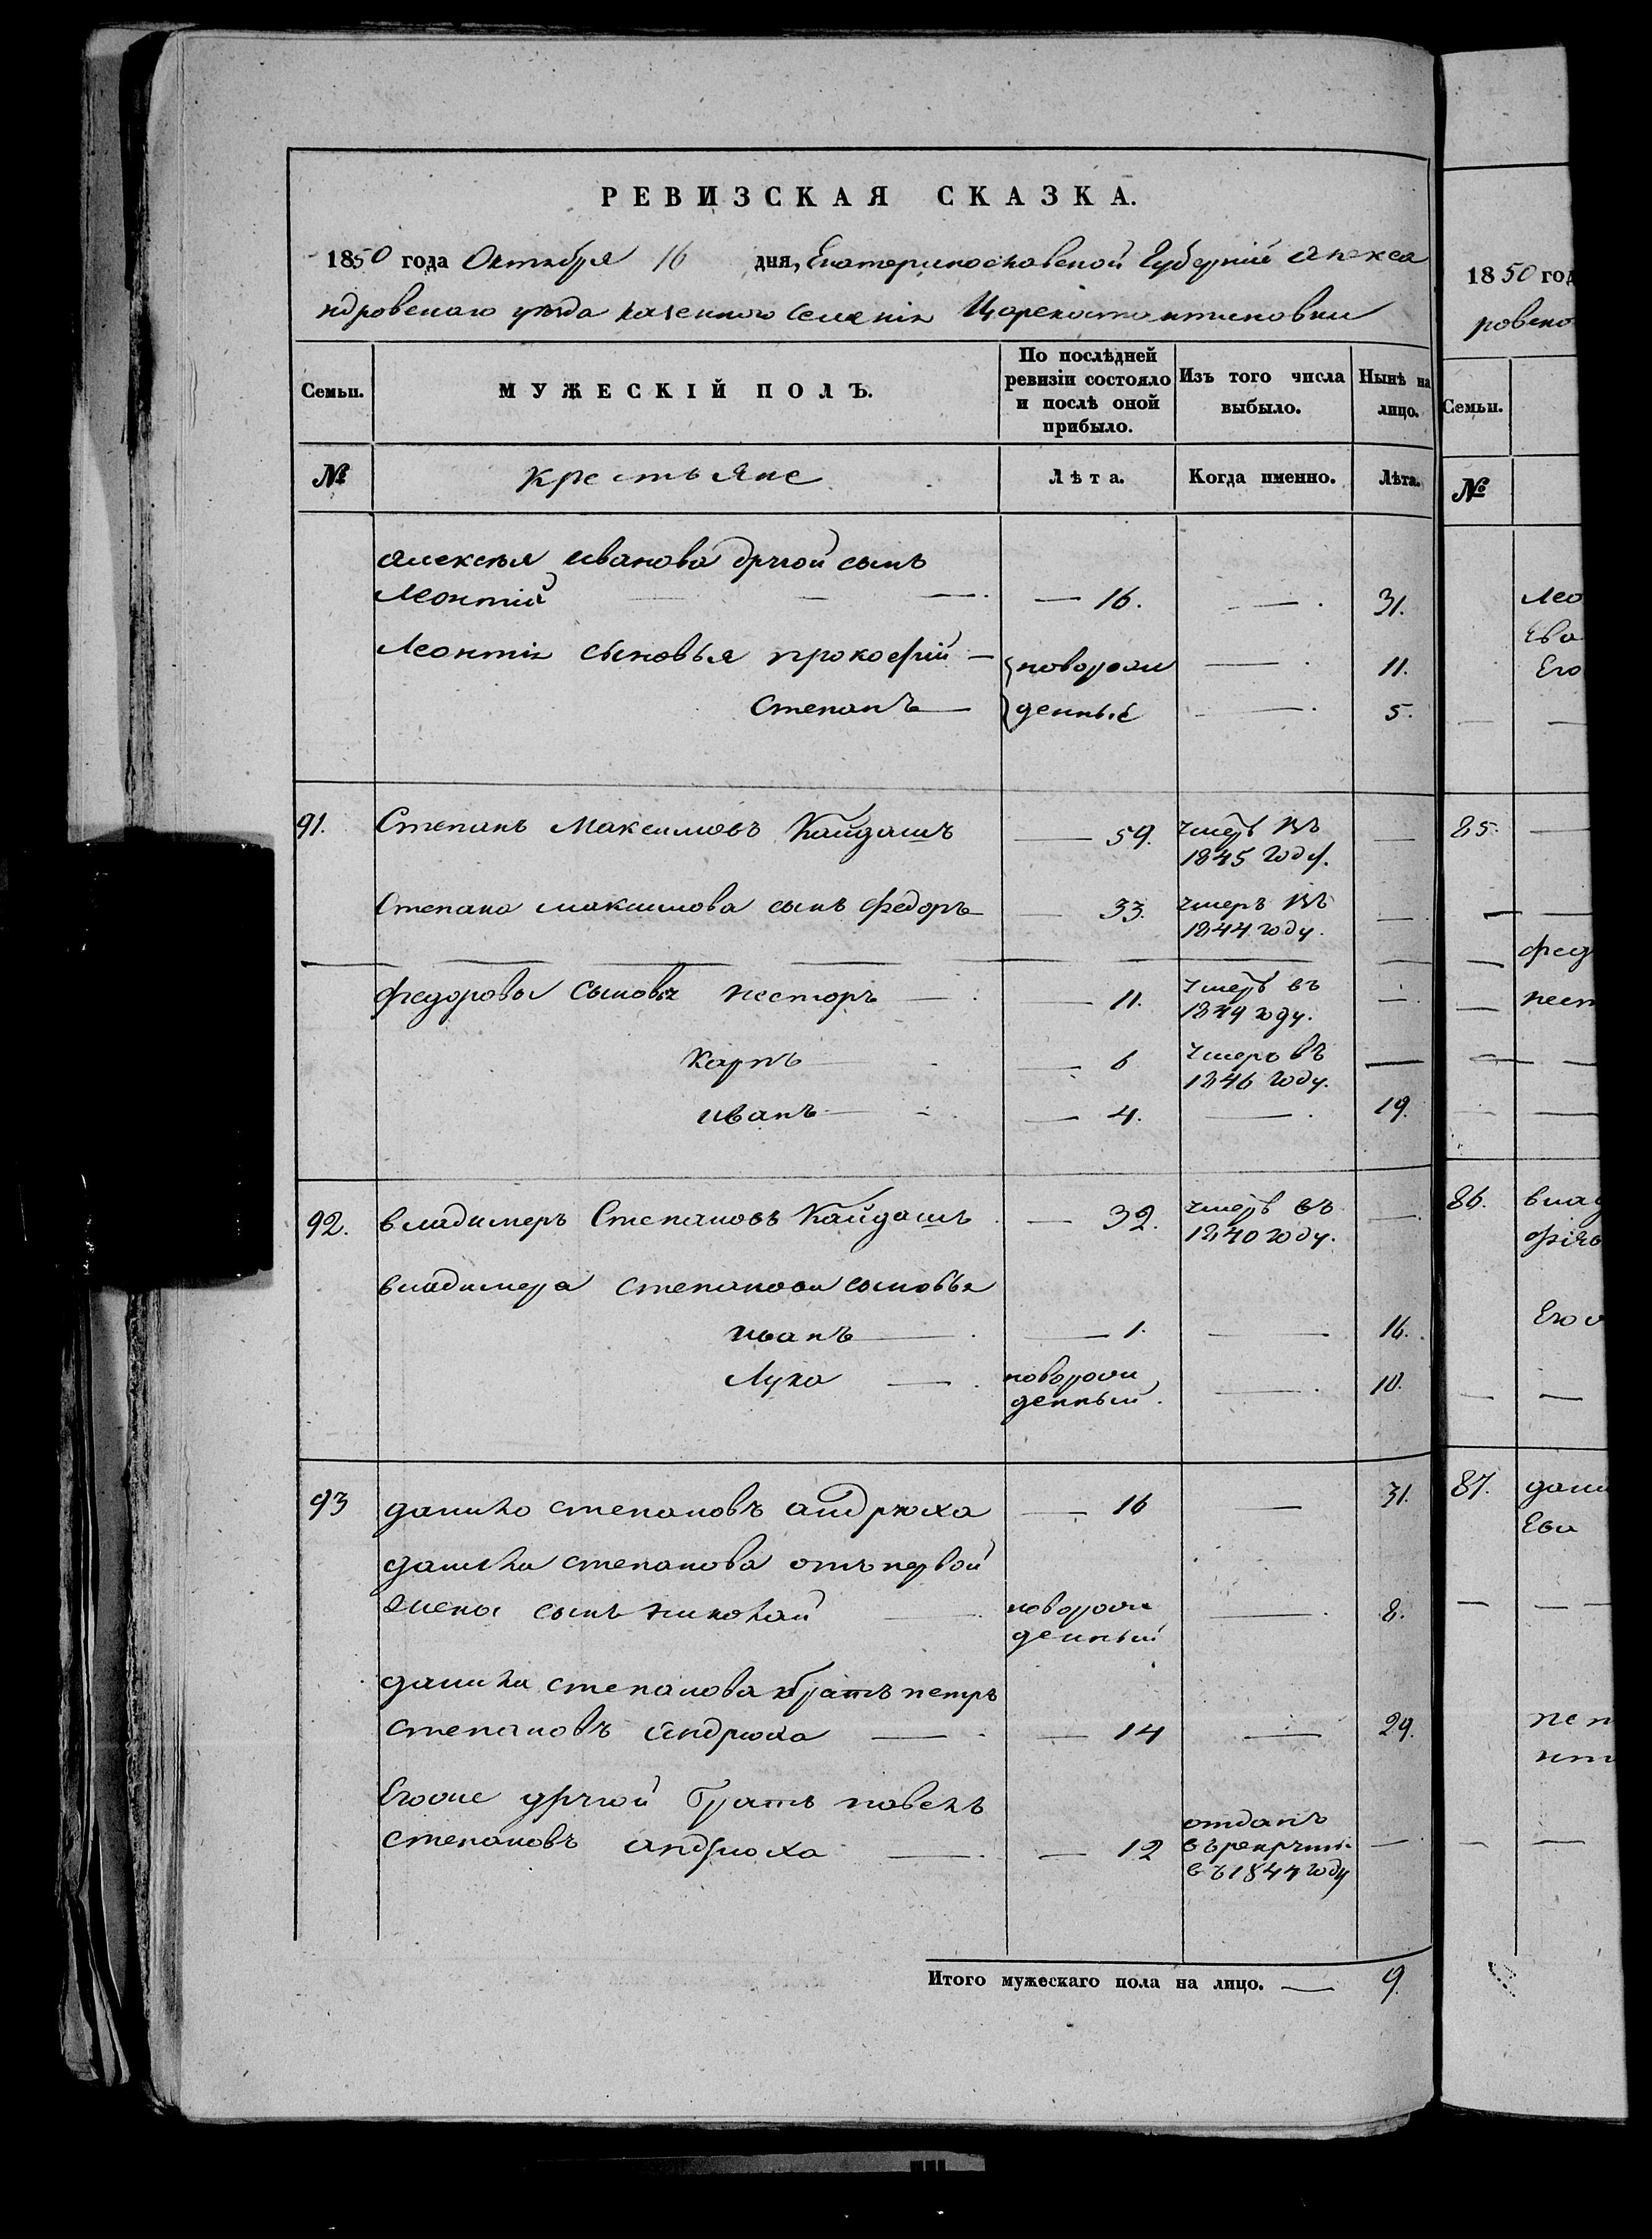 РЕВИЗСКАЯ СКАЗКА.
1850 года Октября 16 дня, Екатеринославской Губерніи Алекса
ндровскаго уѣзда казенного селенія Цареконстантиновки
Семьи. МУЖЕСКІЙ ПОЛЪ. По послѣдней ревизіи состояло и послѣ оной прибыло. Изъ того числа выбыло. Нынѣ на лицо.
№ Крестьяне Лѣта. Когда именно. Лѣта.
Алексѣя Иванова другой сынъ
Леонтій — 16. — 31.
Леонтія сыновья прокофій — новорож — 11.
Степанъ — денные — 5.
91. Степанъ Максимовъ Кайдашъ — 59. умеръ въ 1845 году. —
Степана максимова сынъ Федоръ — 33. умеръ въ 1844 году. —
федоровы сыновья несторъ — 11. умеръ въ 1849 году. —
Карпъ — 6 умеръ въ 1846 году. —
иванъ — 4. — 19.
92. владимеръ Степановъ Кайдашъ — 32. умеръ въ 1840 году. —
владимера степанова сыновья
иванъ — 1. — 16.
Лука — новорож денный. — 10.
93 данило степановъ андрюха — 16 — 31.
данила степанова отъ первой
жены сынъ николай новорож денный — 8.
данила степанова братъ петръ
степановъ андрюха — 14 — 29.
Егоже другой братъ павелъ
степановъ андрюха — 12 отданъ въ рекруты въ 1844 году —
Итого мужескаго пола на лицо. — 9.
1850 год
ровско
Семьи.
№
Лео
Ева
Его
85.
фед
нест
86. влад
Его
87. дани
Ева
пет